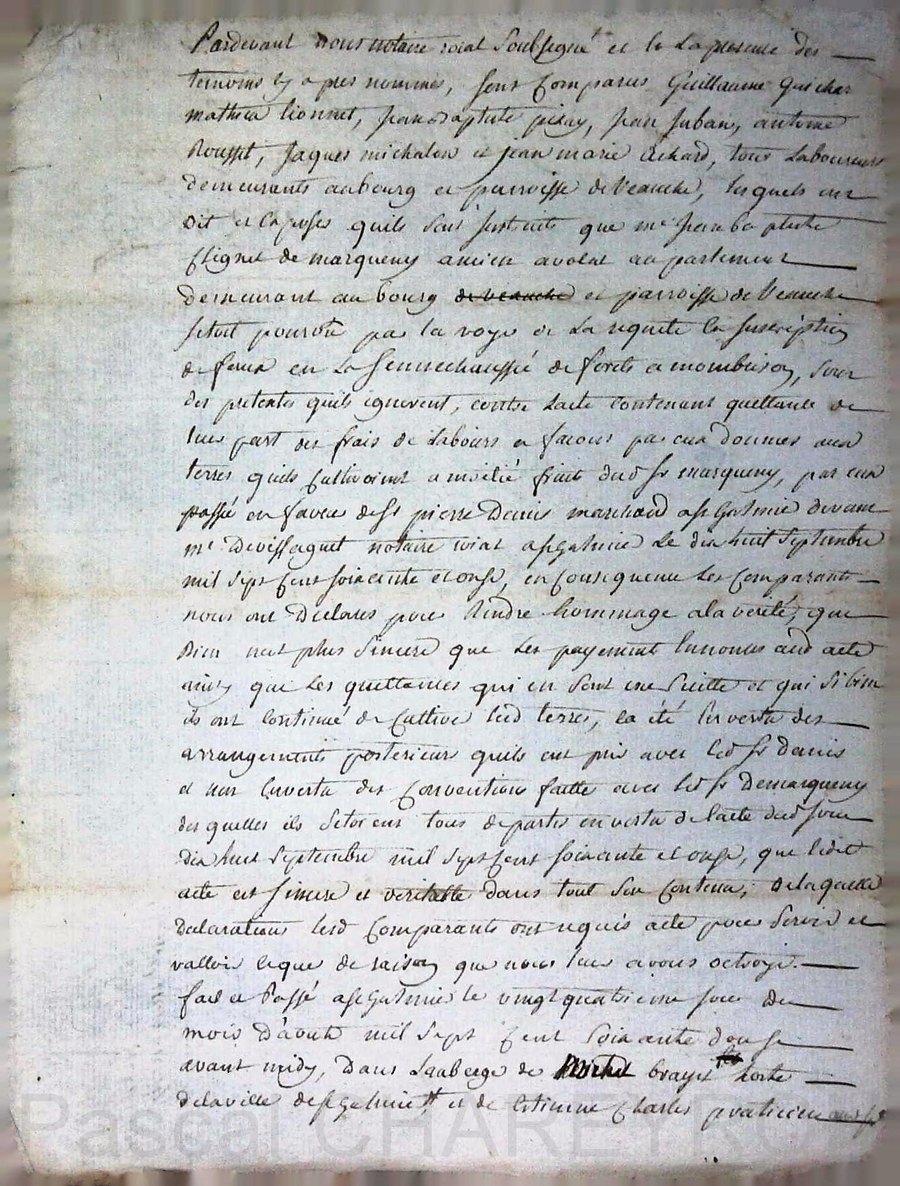 Pardevant nous notaire roial soubsigné et en la presence des
temoins cy apres nommés, sont comparus Guillaume Guichar
mathieu lionnet, jean baptiste pizay, jean juban, antoine
Rousset, jaques michalon et jean marie Achard, tous Laboureurs
demeurants au bourg et parroisse de Veauche, lesquels ont
dit et exposes quils sont instruits que me jean baptiste
de marqueny ancien avocat au parlement
demeurant au bourg de veauche et parroisse de Veauche
setoit pourvu par la voye de la requete en Inscription
de faux en la Sennechaussée de forets a mombrison, sous
des pretextes quils ignorent, contre Lacte contenant quittance de
leur part des frais de labours et facons par eux donnes aux
terres quils cultivoient a moitié fruit dud sr marqueny, par eux
passé en faveur de sr pierre Denis marchand a st Galmier devant
me Devissaguet notaire roial a st Galmier Le dix huit Septembre
mil Sept Cent soixante et onze, en consequence Les Comparants
nous ont Declares pour Rendre hommage a la verité, que
Rien nest plus Sincere que Les payement Enoncés aud acte
ainsy que Les quittances qui en sont une suitte et qui Si bien
ils ont continué de cultiver lesd terres, ca été En vertu des
arrangements posterieurs quils ont pris avec led sr denis
et non En vertu des Conventions faitte avec led sr Demarqueny
des quelles ils setoient tous departis en vertu de lacte dud jour
dix huit Septembre mil Sept Cent soixante et onze, que ledit
acte est sincere et veritable dans tout son Contenu, de laquelle
declarations lesd Comparants ont requis acte pour servir et
valloir ce que de raison que nous leur avons octroyé.
fait et Passé a st Galmier le vingt quatrieme jour du
mois d'aoust mil Sept Cent Soixante douze
avant midy, Dans Lauberge de Michel brayet hoste
de la ville de st Galmier et de Etienne Charles praticien
Pascal CHAREYRON